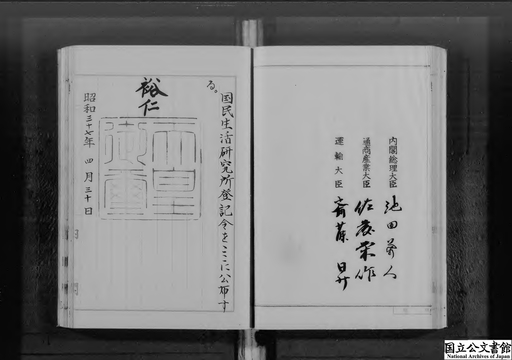 内閣総理大臣 池田勇人
通商産業大臣 佐藤栄作
運輸大臣 斎藤昇
国民生活研究所登記令をここに公布す
る。
裕仁
天皇
御璽
昭和三十七年四月三十日
国立公文書館
National Archives of Japan